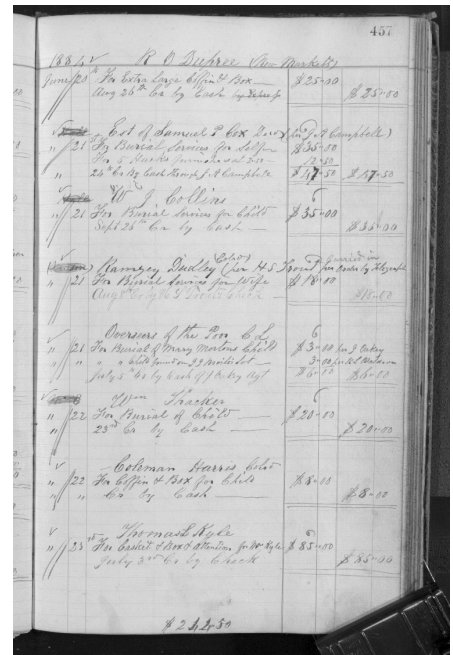 457
1884 R D (New Market)
June 20th For Extra Large Coffin & Box $25-00
Aug 26th Cr by Cash $25-00
Est of Samuel P Cox Decd (J A Campbell)
" 21 For Burial Services for Self $35-00
For 5 Hacks furnished at 2-50 12-50
" 24th Cr By Cash through J A Campbell $47-50 $47-50
W J Collins
" 21 For Burial Services for Child $35-00
Sept 26th Cr by Cash $35-00
Ramsey Dudley (Cold) (for H S Trout) per order by Telegraph
" 21 For Burial Services for Wife $18-00
Aug $18-00
Overseers of the Poor C L
" 21 For Burial of Mary Mortons Child $3-00 per J Oakey
" " " Child found on 3-00
July 5th Cr by Cash of J Oakey Agt $6-00 $6-00
Tucker
" 22 For Burial of Child $20-00
23rd Cr by Cash $20-00
Coleman Harris Cold
" 22 For Coffin & Box for Child $8-00
" " Cr by Cash $8-00
Thomas L Kyle
" 23rd For Casket & Box & attention for Mr Kyle $85-00
July 3rd Cr by Check $85-00